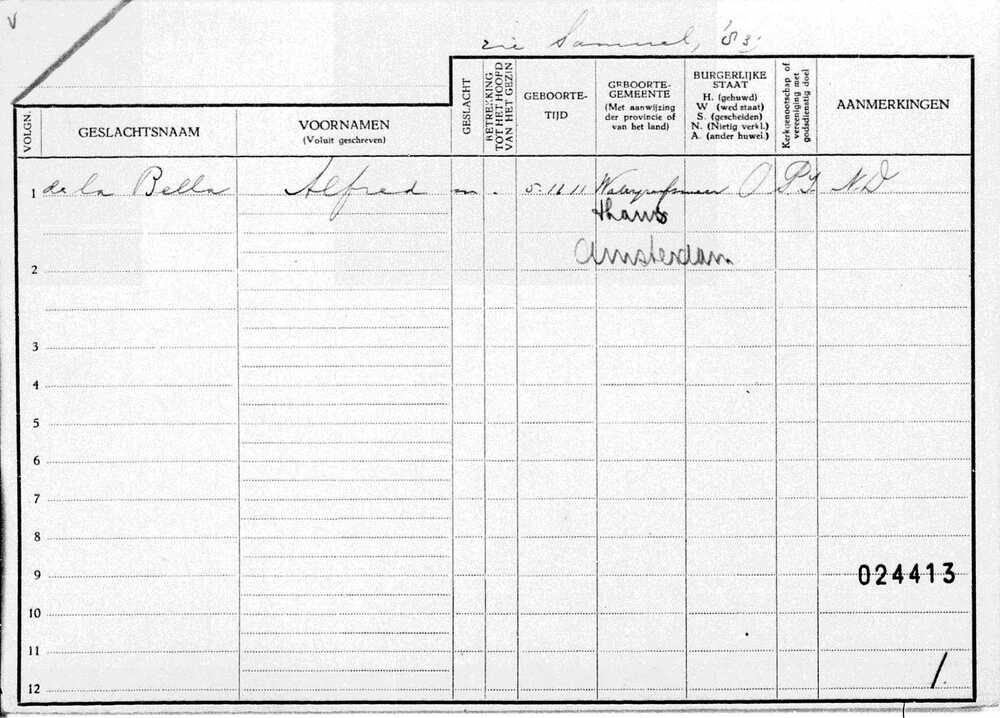 V
zie Samuel, '83
VOLGN.
GESLACHTSNAAM
VOORNAMEN
(Voluit geschreven)
GESLACHT
BETREKKING
TOT HET HOOFD
VAN HET GEZIN
GEBOORTE-
TIJD
GEBOORTE-
GEMEENTE
(Met aanwijzing
der provincie of
van het land)
BURGERLIJKE
STAAT
H. (gehuwd)
W (wed staat)
S. (gescheiden)
N. (Nietig verkl.)
A. (ander huwel.)
Kerkgenootschap of
vereeniging met
godsdienstig doel
AANMERKINGEN
1 de la Bella Alfred m . 5.12.11 Watergraafsmeer O P.I. N.D
thans
2 Amsterdam
3
4
5
6
7
8
9 024413
10
11
12 1.